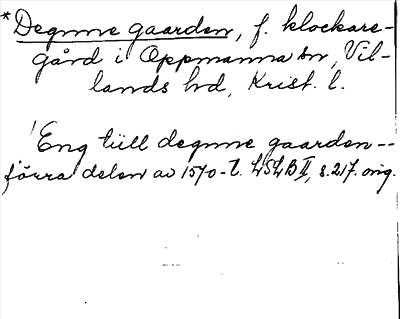 *Degnne gaarden, f. klockare-
gård i Oppmanna sn, Vil-
lands hd, Krist. l.
'Eng till degnne gaarden --
förra delen av 1570-t. LSLB II, s. 217. orig.